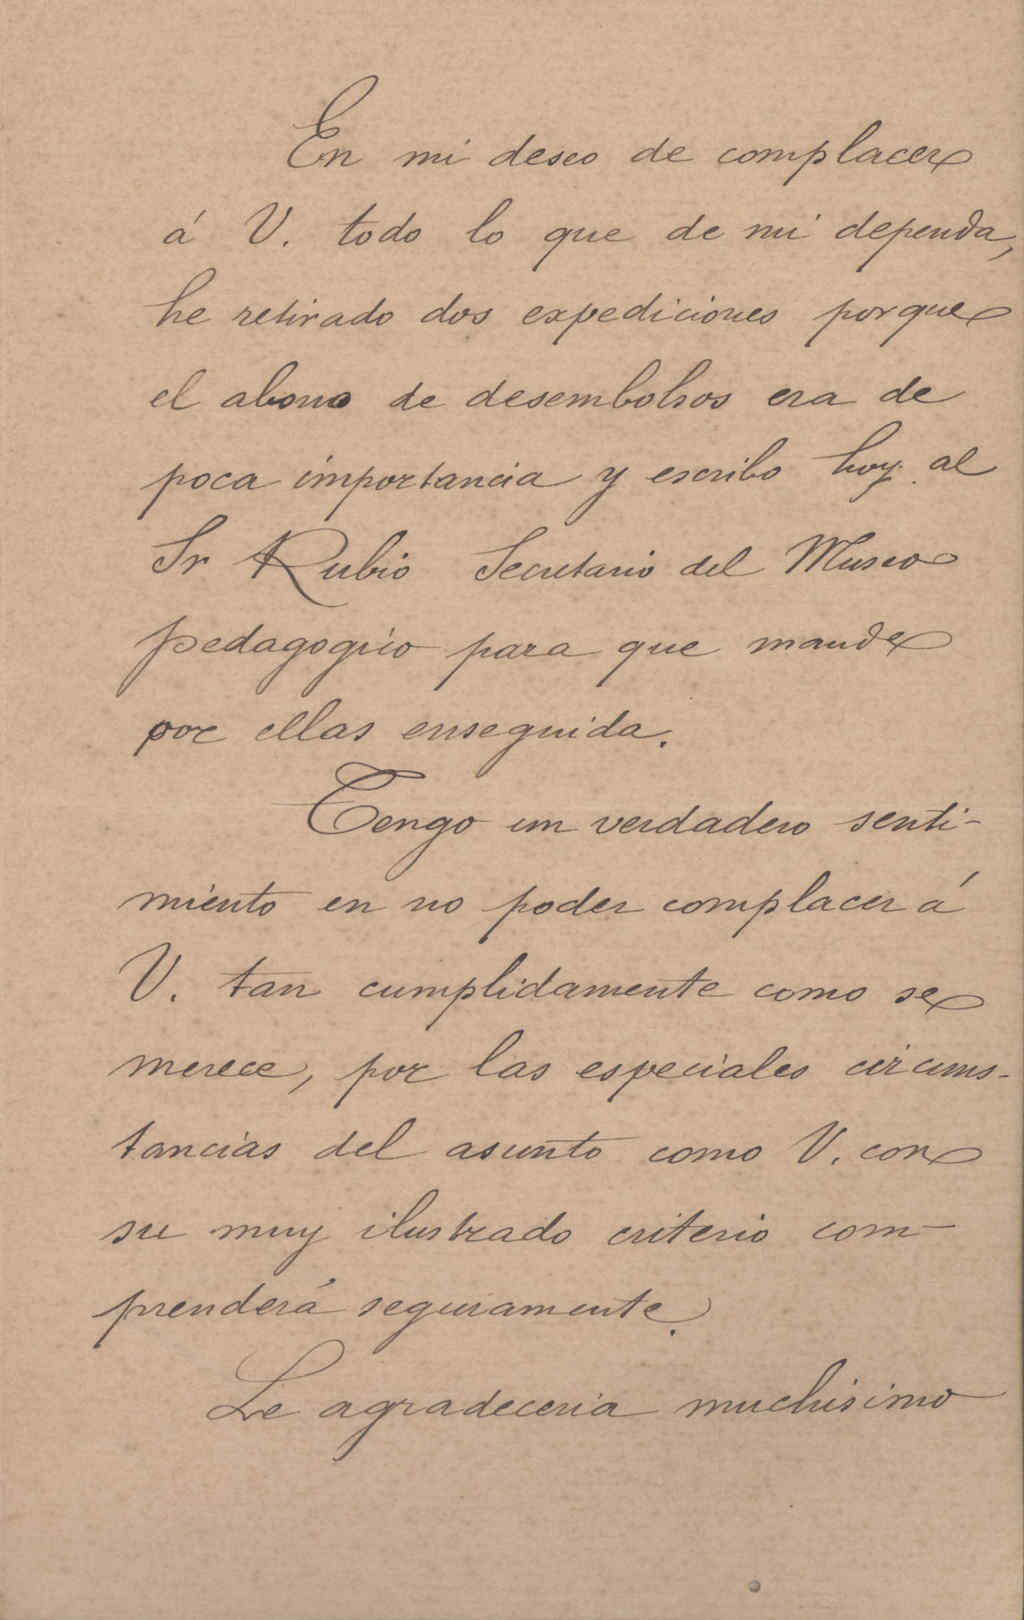 En mi deseo de complacer
á V. todo lo que de mi dependa,
he retirado dos expediciones porque
el abono de desembolsos era de
poca importancia y escribo hoy al
Sr Rubio Secretario del Museo
pedagogico para que mande
por ellas enseguida.
Tengo un verdadero senti-
miento en no poder complacer á
V. tan cumplidamente como se
merece, por las especiales circuns-
tancias del asunto como V. con
su muy ilustrado criterio com-
prenderá seguramente.
Le agradeceria muchisimo